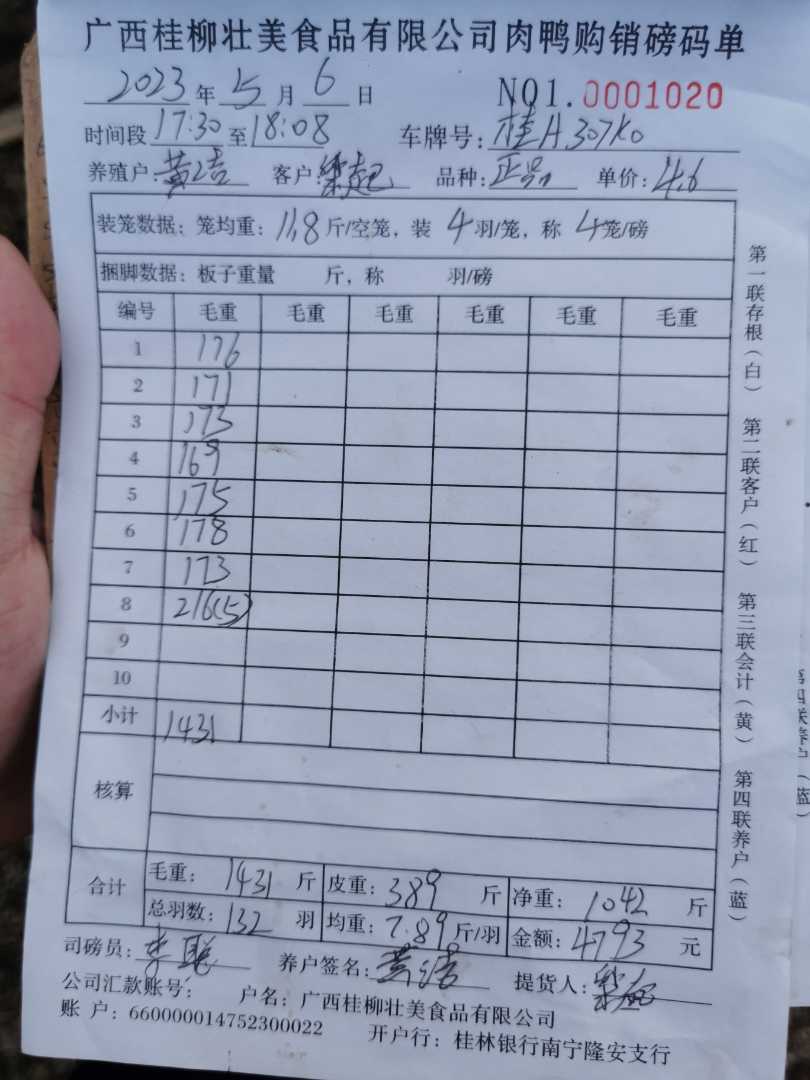 广西桂柳壮美食品有限公司肉鸭购销磅码单
2023 年 5 月 6 日 NO1.0001020
时间段 17:30 至 18:08 车牌号: 桂A307K0
养殖户: 黄 客户: 梁起 品种: 正品 单价: 4.6
装笼数据: 笼均重: 11.8 斤/空笼, 装 4 羽/笼, 称 4 笼/磅
捆脚数据: 板子重量 斤, 称 羽/磅
编号 毛重 毛重 毛重 毛重 毛重 毛重
1 176
2 171
3 173
4 169
5 175
6 178
7 173
8 216(5)
9
10
小计 1431
核算
合计 毛重: 1431 斤 皮重: 389 斤 净重: 1042 斤
总羽数: 132 羽 均重: 7.89 斤/羽 金额: 4793 元
司磅员: 李 养户签名: 黄 提货人: 梁起
公司汇款账号: 户名: 广西桂柳壮美食品有限公司
账 户: 660000014752300022 开户行: 桂林银行南宁隆安支行
第一联存根(白) 第二联客户(红) 第三联会计(黄) 第四联养户(蓝)
第四联养户(蓝)